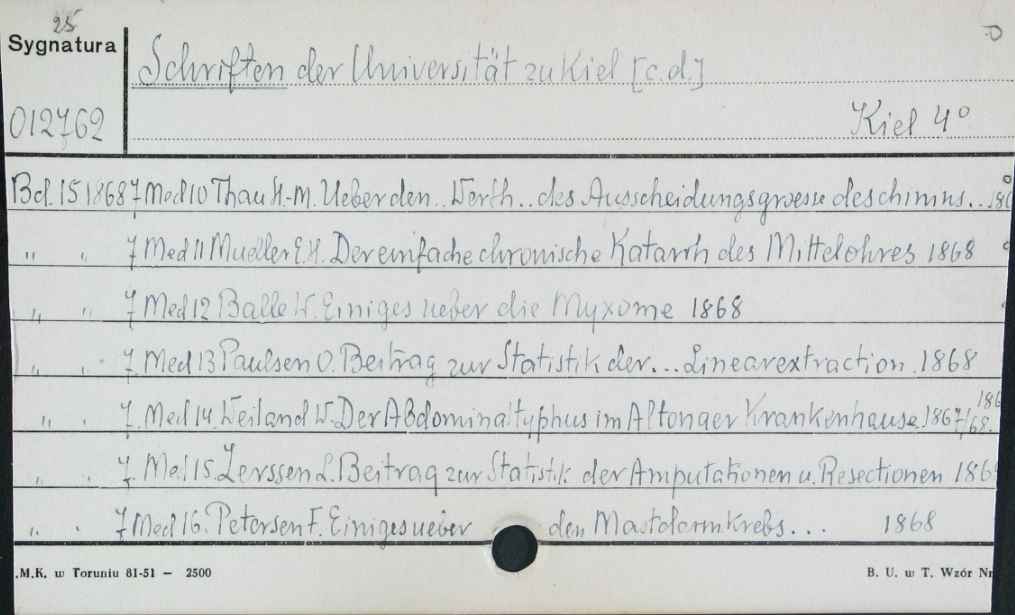 25
Sygnatura
Schriften der Universität zu Kiel [c.d.]
012762
Kiel 4°
Bd. 15 1868 7 Med 10 Thau H.-M. Ueber den.. Werth.. des Ausscheidungsgroesse des chinins..
" " 7 Med 11 Mueller E.H. Der einfache chronische Katarrh des Mittelohres 1868
" " 7 Med 12 Balle W. Einiges ueber die Myxome 1868
" " 7 Med 13 Paulsen O. Beitrag zur Statistik der... Linearextraction 1868
" " 7. Med 14. Weiland W. Der Abdominaltyphus im Altonaer Krankenhause 1867/68.
" " 7. Med 15. Zerssen L. Beitrag zur Statistik der Amputationen u. Resectionen
" " 7 Med 16. Petersen F. Einiges ueber den Mastdarmkrebs... 1868
.M.K. w Toruniu 81-51 — 2500
B. U. w T. Wzór Nr